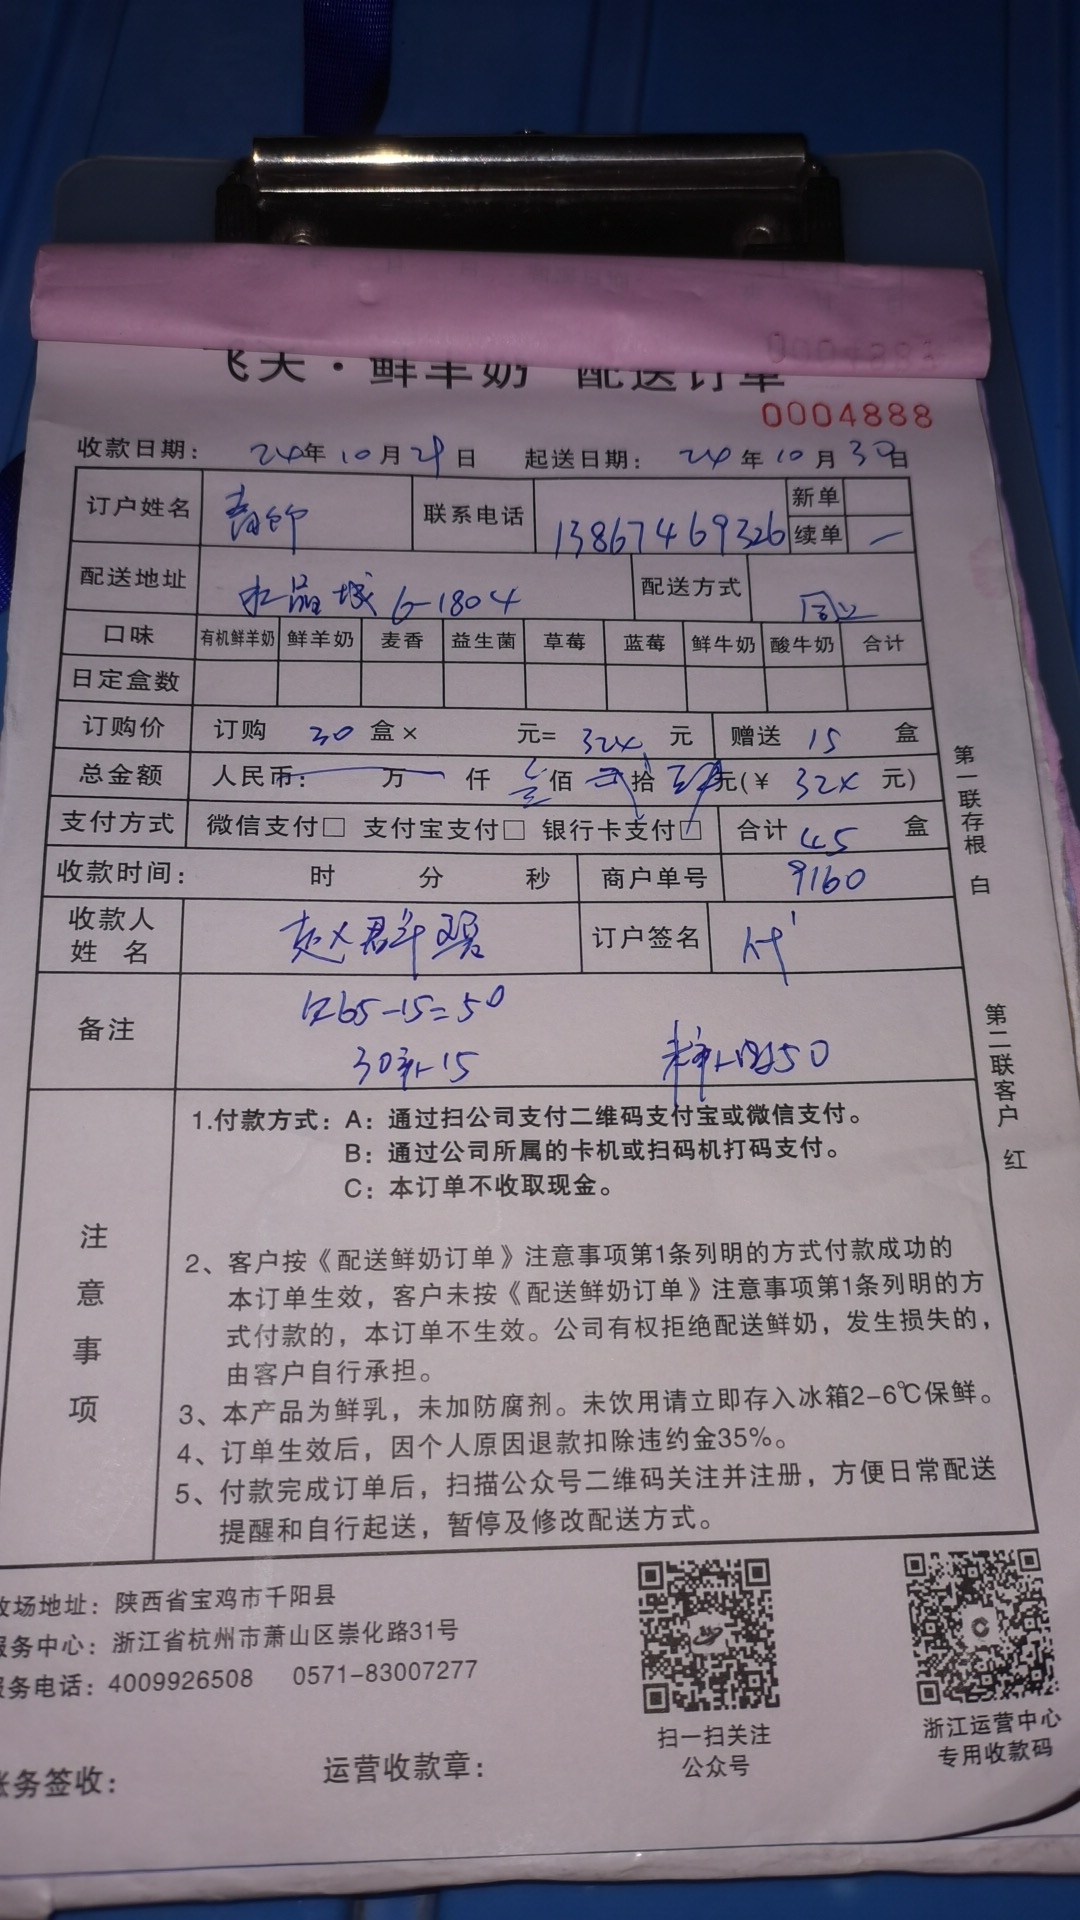 飞天·鲜羊奶 配送订单
0004888
收款日期: 24年10月29日 起送日期: 24年10月30日
订户姓名 联系电话 13867469326 新单
续单 一
配送地址 水晶城 6-1804 配送方式
口味 有机鲜羊奶 鲜羊奶 麦香 益生菌 草莓 蓝莓 鲜牛奶 酸牛奶 合计
日定盒数
订购价 订购 30 盒× 元= 324 元 赠送 15 盒
总金额 人民币: 万 仟 叁佰 贰拾 肆元(¥ 324 元)
支付方式 微信支付□ 支付宝支付□ 银行卡支付□ 合计 45 盒
收款时间: 时 分 秒 商户单号 9160
收款人
姓 名 订户签名
备注 65-15=50
30 15 50
注意事项
1.付款方式: A: 通过扫公司支付二维码支付宝或微信支付。
B: 通过公司所属的卡机或扫码机打码支付。
C: 本订单不收取现金。
2、客户按《配送鲜奶订单》注意事项第1条列明的方式付款成功的
本订单生效,客户未按《配送鲜奶订单》注意事项第1条列明的方
式付款的,本订单不生效。公司有权拒绝配送鲜奶,发生损失的,
由客户自行承担。
3、本产品为鲜乳,未加防腐剂。未饮用请立即存入冰箱2-6℃保鲜。
4、订单生效后,因个人原因退款扣除违约金35%。
5、付款完成订单后,扫描公众号二维码关注并注册,方便日常配送
提醒和自行起送,暂停及修改配送方式。
第一联存根 白
第二联客户 红
牧场地址: 陕西省宝鸡市千阳县
服务中心: 浙江省杭州市萧山区崇化路31号
服务电话: 4009926508 0571-83007277
扫一扫关注
公众号
浙江运营中心
专用收款码
账务签收: 运营收款章: